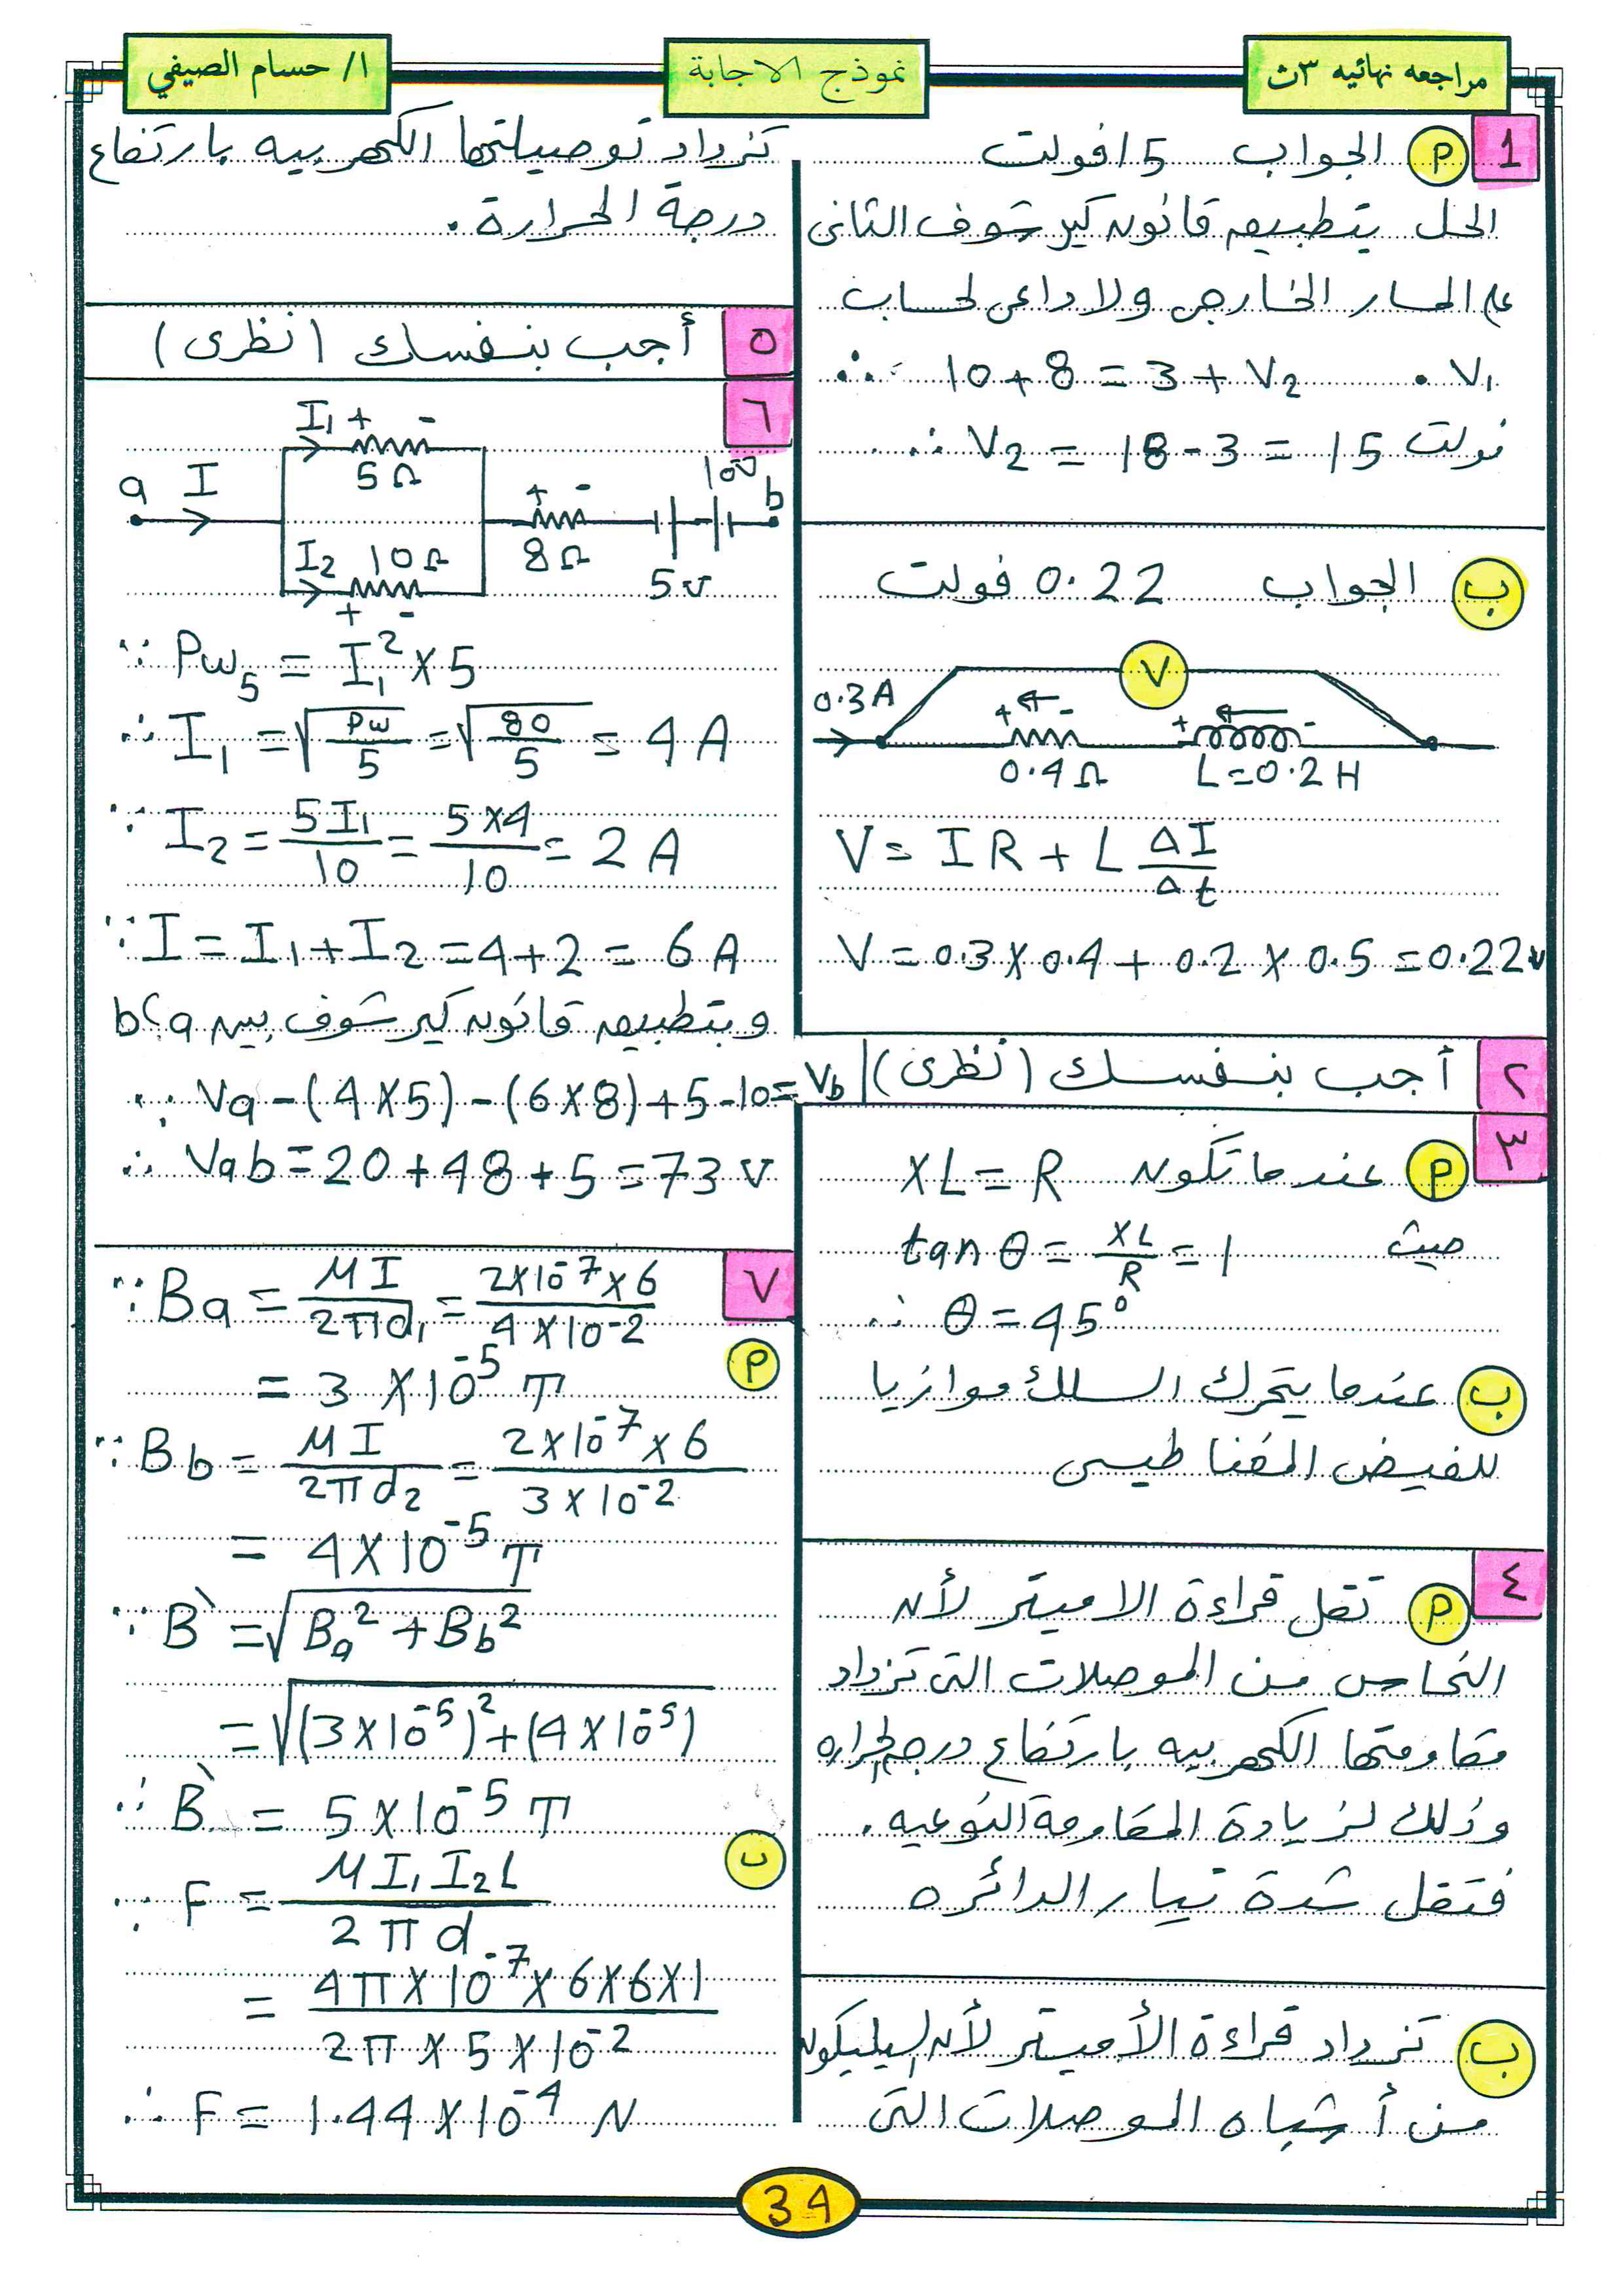 مراجعه نهائيه ٣ث
نموذج الاجابة
ا/ حسام الصيفي
1
P الجواب 15 فولت
الحل بتطبيق قانون كيرشوف الثانى
على المسار الخارجى ولا داعى لحساب
V₁ . ∴ 10 + 8 = 3 + V₂
∴ V₂ = 18 - 3 = 15 فولت
ب الجواب 0.22 فولت
V
0.3A
+ ← -
+ ← -
0.4Ω
L=0.2H
V = IR + L ΔI/Δt
V = 0.3 X 0.4 + 0.2 X 0.5 = 0.22 v
٢ أجب بنفسك (نظرى)
٣
P عندما تكون XL = R
حيث tan θ = XL/R = 1
∴ θ = 45°
ب عندما يتحرك السلك موازيا
للفيض المغناطيسى
٤
P تقل قراءة الاميتر لأن
النحاس من الموصلات التى تزداد
مقاومتها الكهربيه بارتفاع درجه الحراره
وذلك لزيادة المقاومة النوعيه.
فتقل شدة تيار الدائره
ب تزداد قراءة الأميتر لأن السيليكون
من أشباه الموصلات التى
تزداد توصيلتها الكهربيه بارتفاع
درجة الحرارة .
٥ أجب بنفسك (نظرى)
٦
I₁ + -
5Ω
a I
+ -
8Ω
10v
b
5v
I₂ 10Ω
+ -
∵ Pw₅ = I₁² X 5
∴ I₁ = √(Pw/5) = √(80/5) = 4 A
∵ I₂ = 5I₁/10 = 5X4/10 = 2 A
∵ I = I₁ + I₂ = 4 + 2 = 6 A
وبتطبيق قانون كيرشوف بين a، b
∵ Va - (4X5) - (6X8) + 5 - 10 = Vb
∴ Vab = 20 + 48 + 5 = 73 v
٧
P
∵ Ba = μI/2πd₁ = 2X10⁻⁷ X 6/4X10⁻²
= 3 X 10⁻⁵ T
∵ Bb = μI/2πd₂ = 2X10⁻⁷ X 6/3X10⁻²
= 4X10⁻⁵ T
∵ B` = √(Ba² + Bb²)
= √((3X10⁻⁵)² + (4X10⁻⁵))
∴ B` = 5X10⁻⁵ T
ب
∵ F = μI₁I₂L/2πd
= 4πX10⁻⁷ X 6X6X1/2π X 5 X 10⁻²
∴ F = 1.44X10⁻⁴ N
34